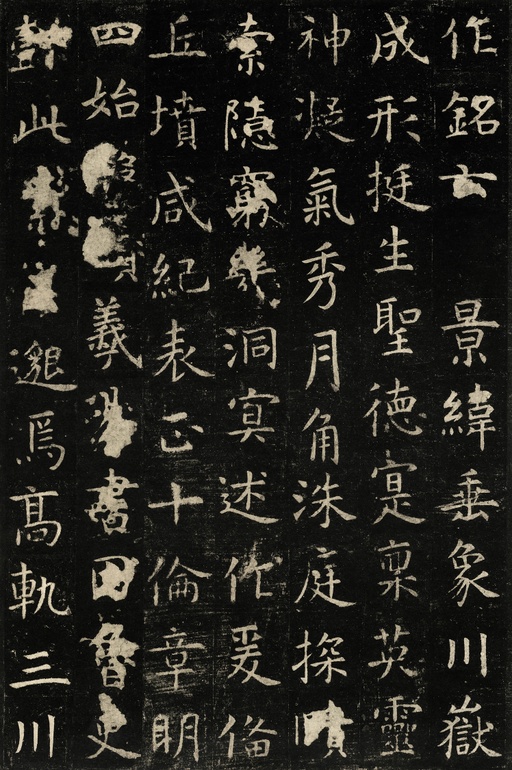 作銘云 景緯垂象川嶽
成形挺生聖徳寔稟英靈
神凝氣秀月角洙庭探賾
索隱窮幾洞冥述作爰俻
丘墳咸紀表正十倫章明
四始羲易書因魯史
懿此邈焉髙軌三川